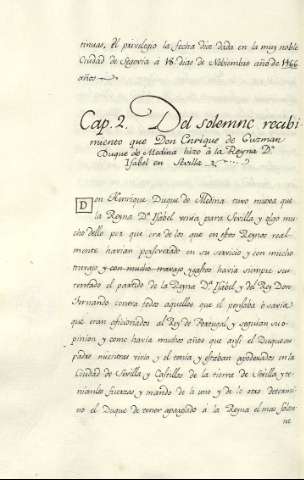 tinuas, el privilegio la fecha dice dada en la muy noble
Ciudad de Segovia à 18. dias de Noviembre año de 1466
años
Cap. 2. Del solemne recebi
miento que Don Enrique de Guzman
Duque de Medina hizo à la Reyna Dª
Isabel en Sevilla
Don Henrique Duque de Medina, tuvo nueva que
la Reyna Dª Isabel venia para Sevilla y olgo mu
cho dello por que era de los que en estos Reynos real
mente havian perseverado en su servicio y con mucho
travajo y con mucho gasto havia siempre sus
tentado el partido de la Reyna Dª Isabel y del Rey Don
Fernando contra todos aquellos que el pensaba ò savia
que eran aficionados al Rey de Portugal, y seguian su o
pinion y como havia muchos años que assi el Duque su
padre mientras vivio y el tenia y estaban apoderados en la
Ciudad de Sevilla y Castillos de la tierra de Sevilla y te
nian las fuerzas y mando de lo uno y de lo otro determi
no el Duque de tener aparejado à la Reyna el mas solem
ne